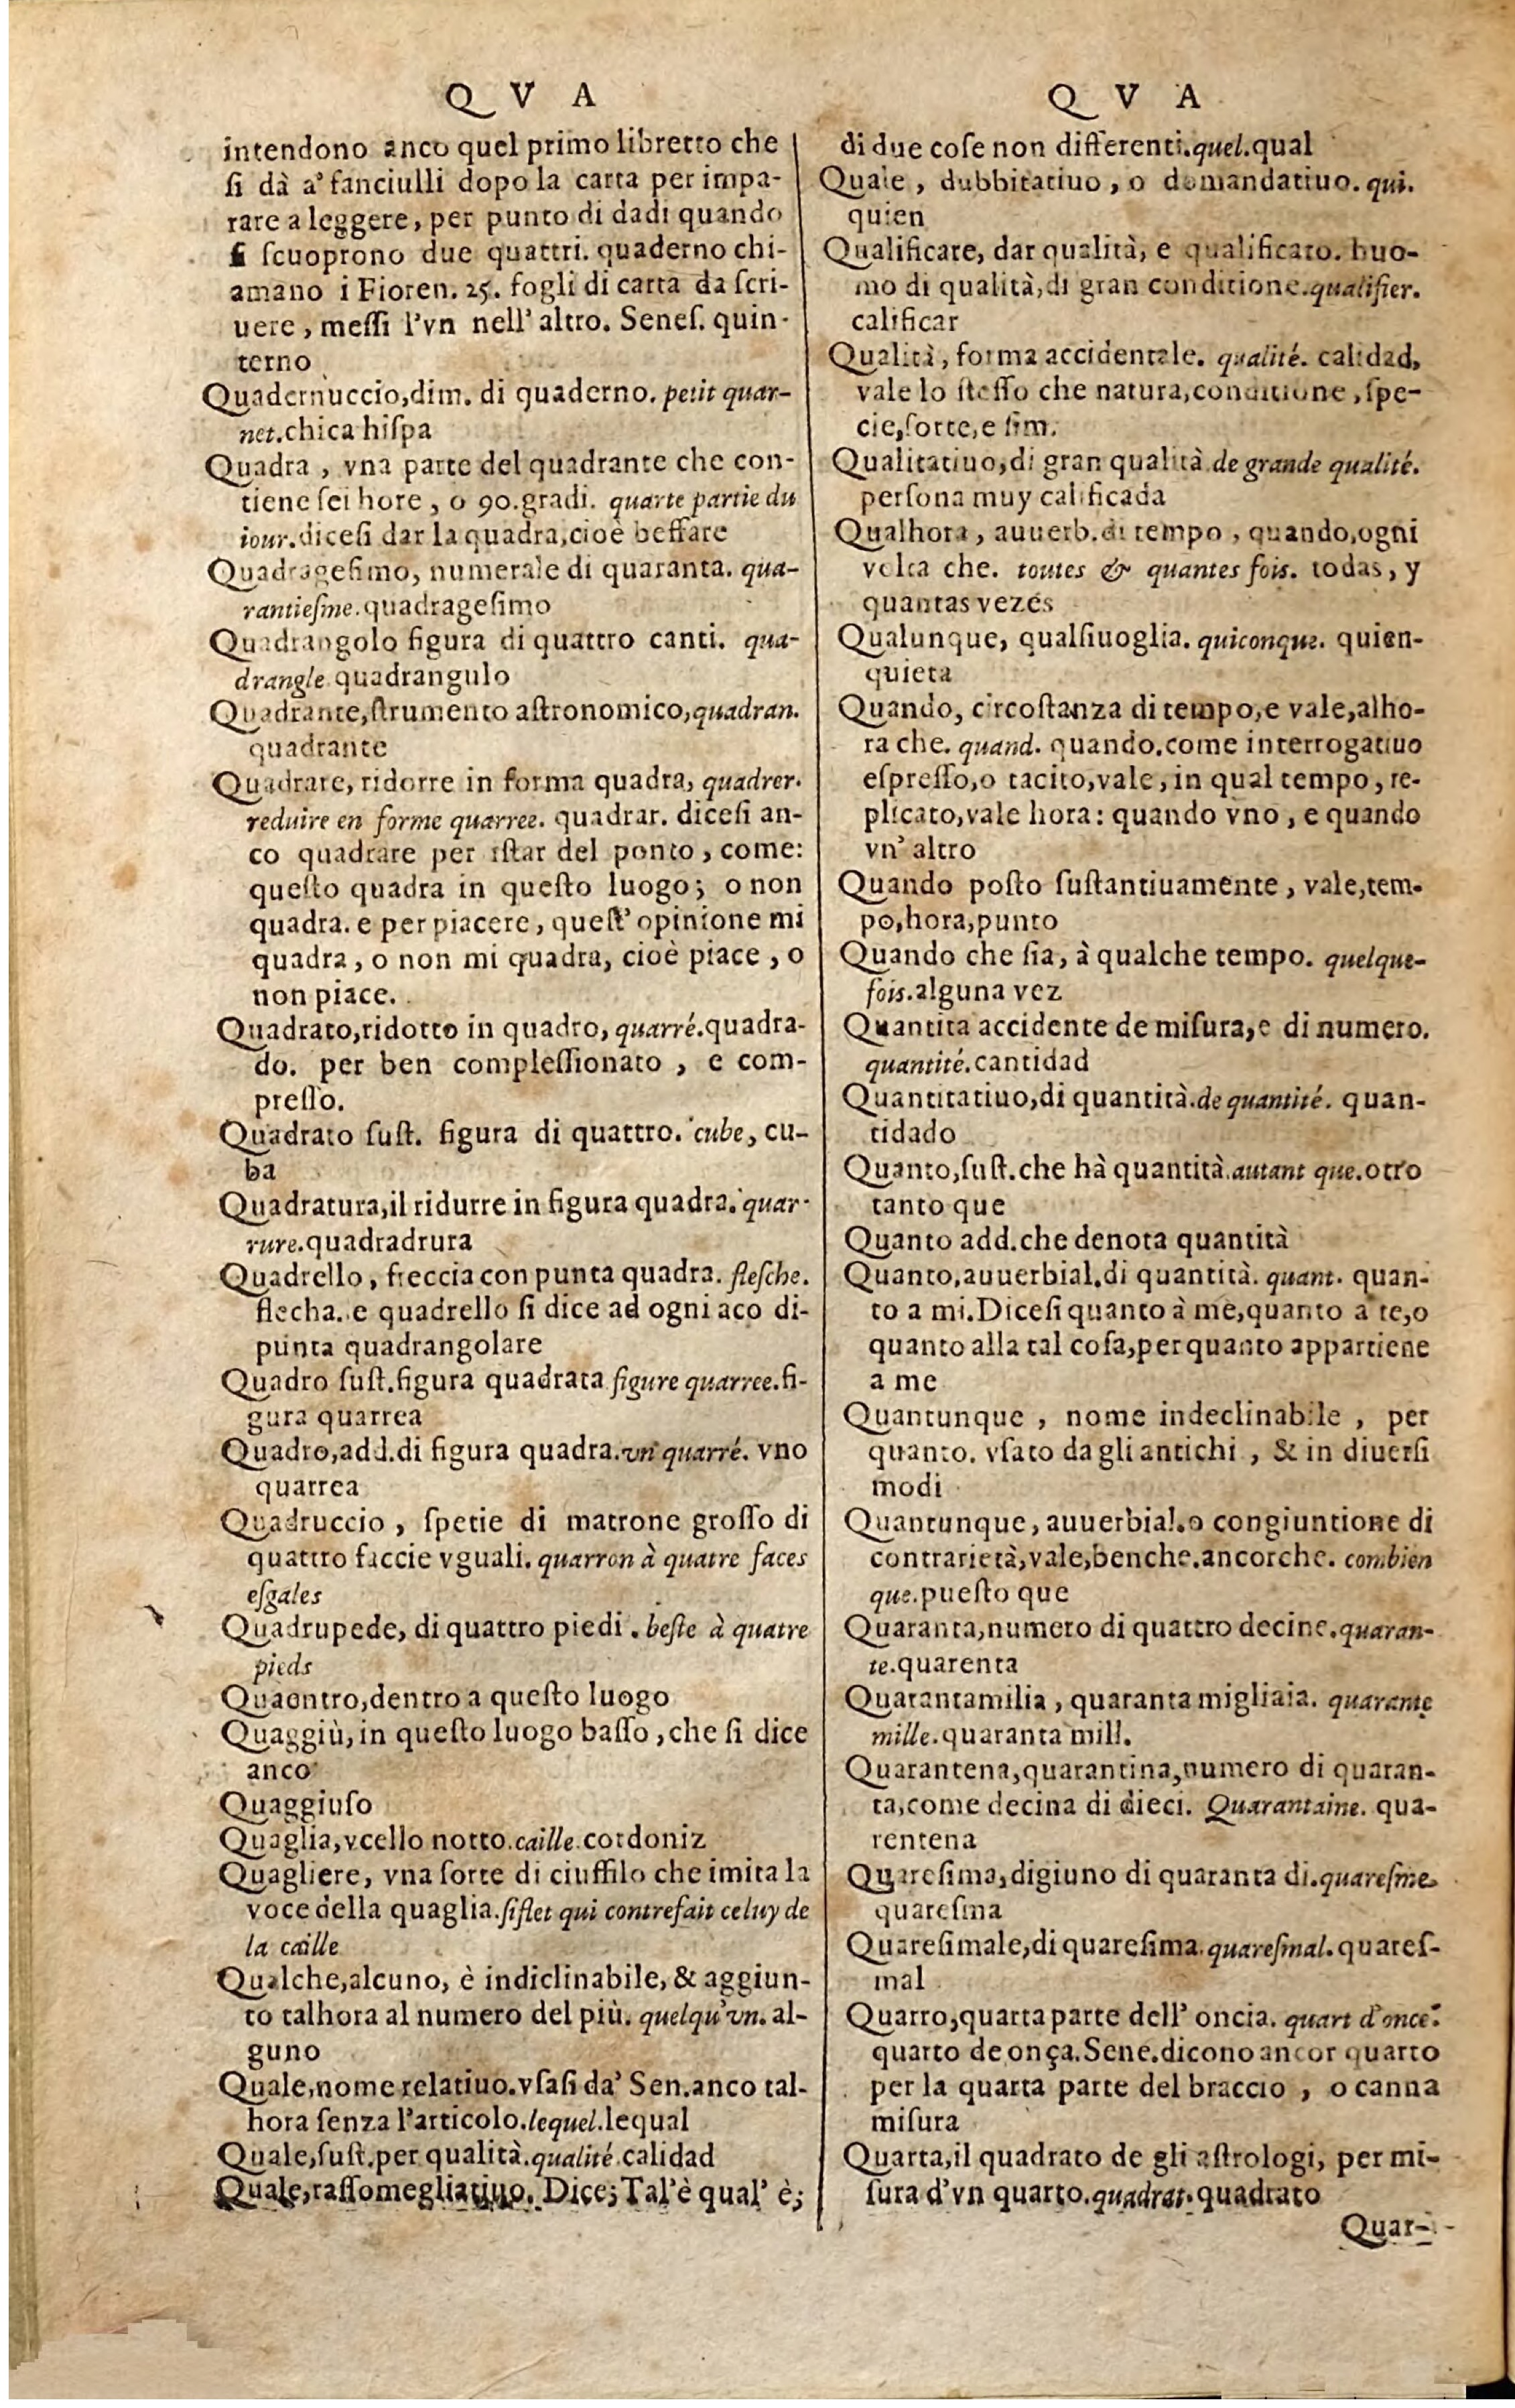 Q V A
intendono anco quel primo libretto che
ſi dà a' fanciulli dopo la carta per impa-
rare a leggere, per punto di dadi quando
ſi ſcuoprono due quattri. quaderno chi-
amano i Fioren. 25. fogli di carta da ſcri-
uere, meſſi l'vn nell' altro. Seneſ. quin-
terno
Quadernuccio, dim. di quaderno. petit quar-
net. chica hiſpa
Quadra, vna parte del quadrante che con-
tiene ſei hore, o 90. gradi. quarte partie du
iour. diceſi dar la quadra, cioè beffare
Quadrageſimo, numerale di quaranta. qua-
rantieſme. quadrageſimo
Quadrangolo figura di quattro canti. qua-
drangle quadrangulo
Quadrante, ſtrumento aſtronomico, quadran.
quadrante
Quadrare, ridorre in forma quadra, quadrer.
reduire en forme quarree. quadrar. diceſi an-
co quadrare per iſtar del ponto, come:
queſto quadra in queſto luogo; o non
quadra. e per piacere, queſt' opinione mi
quadra, o non mi quadra, cioè piace, o
non piace.
Quadrato, ridotto in quadro, quarré. quadra-
do. per ben compleſſionato, e com-
preſſo.
Quadrato ſuſt. figura di quattro. cube, cu-
ba
Quadratura, il ridurre in figura quadra. quar-
rure. quadradrura
Quadrello, freccia con punta quadra. fleſche.
flecha. e quadrello ſi dice ad ogni aco di-
punta quadrangolare
Quadro ſuſt. figura quadrata figure quarree. fi-
gura quarrea
Quadro, add. di figura quadra. vn quarré. vno
quarrea
Quadruccio, ſpetie di matrone groſſo di
quattro faccie vguali. quarron à quatre faces
eſgales
Quadrupede, di quattro piedi. beſte à quatre
pieds
Quaentro, dentro a queſto luogo
Quaggiù, in queſto luogo baſſo, che ſi dice
anco
Quaggiuſo
Quaglia, vcello notto. caille. cordoniz
Quagliere, vna ſorte di ciuffilo che imita la
voce della quaglia. ſiflet qui contrefait celuy de
la caille
Qualche, alcuno, è indiclinabile, & aggiun-
to talhora al numero del più. quelqu'vn. al-
guno
Quale, nome relatiuo. vſaſi da' Sen. anco tal-
hora ſenza l'articolo. lequel. lequal
Quale, ſuſt. per qualità. qualité. calidad
Quale, raſſomegliatiuo. Dice; Tal'è qual' è;
Q V A
di due coſe non differenti. quel. qual
Quale, dubbitatiuo, o domandatiuo. qui.
quien
Qualificare, dar qualità, e qualificato. huo-
mo di qualità, di gran conditione. qualifier.
calificar
Qualità, forma accidentale. qualité. calidad,
vale lo ſteſſo che natura, conditione, ſpe-
cie, ſorte, e ſim.
Qualitatiuo, di gran qualità. de grande qualité.
perſona muy calificada
Qualhora, auuerb. di tempo, quando, ogni
volta che. toutes & quantes fois. todas, y
quantas vezes
Qualunque, qualſiuoglia. quiconque. quien-
quiera
Quando, circoſtanza di tempo, e vale, alho-
ra che. quand. quando. come interrogatiuo
eſpreſſo, o tacito, vale, in qual tempo, re-
plicato, vale hora: quando vno, e quando
vn' altro
Quando poſto ſuſtantiuamente, vale, tem-
po, hora, punto
Quando che ſia, à qualche tempo. quelque-
fois. alguna vez
Quantita accidente de miſura, e di numero.
quantité. cantidad
Quantitatiuo, di quantità. de quantité. quan-
tidado
Quanto, ſuſt. che hà quantità. autant que. otro
tanto que
Quanto add. che denota quantità
Quanto, auuerbial. di quantità. quant. quan-
to a mi. Diceſi quanto à me, quanto a te, o
quanto alla tal coſa, per quanto appartiene
a me
Quantunque, nome indeclinabile, per
quanto. vſato da gli antichi, & in diuerſi
modi
Quantunque, auuerbial. o congiuntione di
contrarietà, vale, benche. ancorche. combien
que. pueſto que
Quaranta, numero di quattro decine. quaran-
te. quarenta
Quarantamilia, quaranta migliaia. quarante
mille. quaranta mill.
Quarantena, quarantina, numero di quaran-
ta, come decina di dieci. Quarantaine. qua-
rentena
Quareſima, digiuno di quaranta dì. quareſme
quareſma
Quareſimale, di quareſima. quareſmal. quareſ-
mal
Quarro, quarta parte dell' oncia. quart d'once.
quarto de onça. Sene. dicono ancor quarto
per la quarta parte del braccio, o canna
miſura
Quarta, il quadrato de gli aſtrologi, per mi-
ſura d'vn quarto. quadrat. quadrato
Quar-